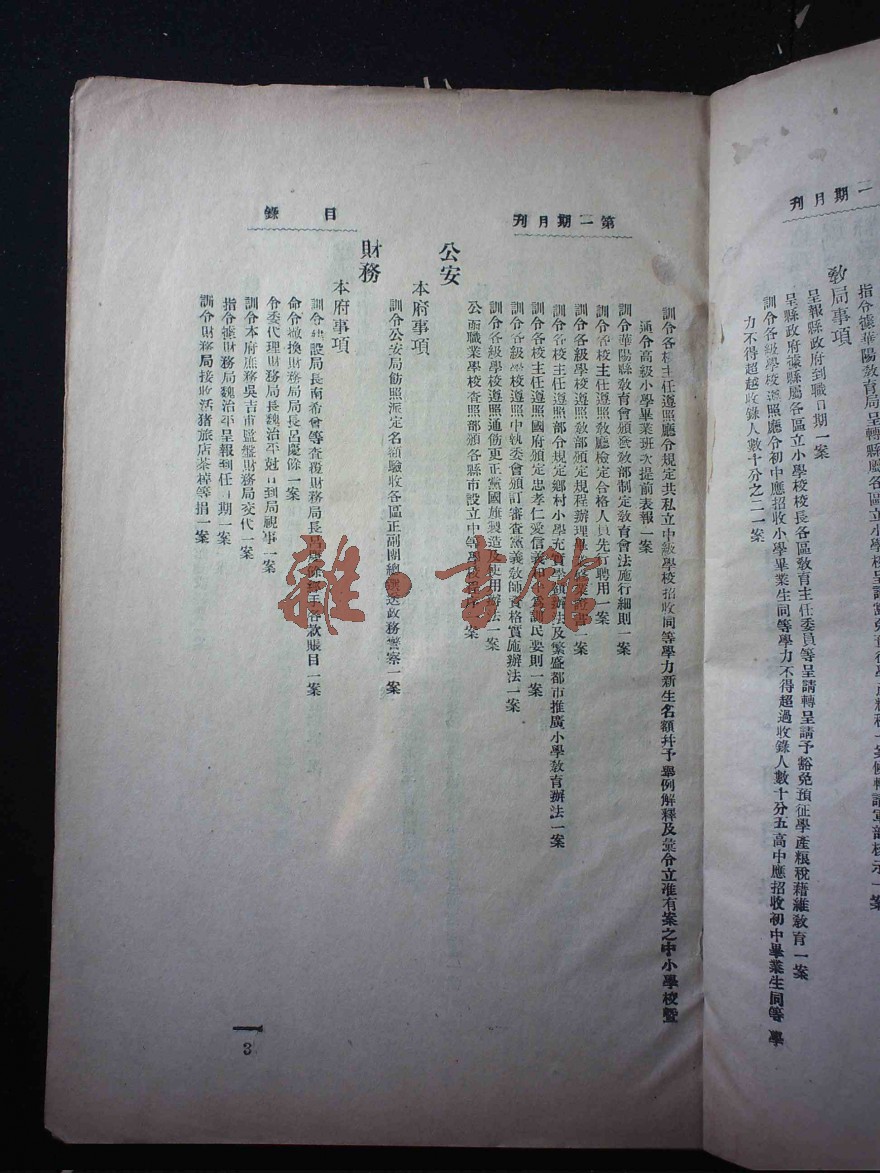 一期月刊
指令據華陽教育局呈轉縣屬各區立小學校呈請豁免
教局事項
呈報縣政府到職日期一案
呈縣政府據縣屬各區立小學校校長各區教育主任委員等呈請轉呈請予豁免預征學產粮稅藉維教育一案
訓令各級學校遵照廳令初中應招收小學畢業生同等學力不得超過收錄人數十分五高中應招收初中畢業生同等學
力不得超越收錄人數十分之二一案
第二期月刊
目錄
訓令各校主任遵照廳令規定共私立中級學校招收同等學力新生名額幷予舉例解釋及彙令立准有案之中小學校暨
通令高級小學畢業班次提前表報一案
訓令華陽縣教育會頒發教部制定教育會法施行細則一案
訓令各校主任遵照教廳檢定合格人員先行聘用一案
訓令各級學校遵照教部頒定規程辦理畢業修業證書一案
訓令各校主任遵照部令規定鄉村小學充實學額辦法及繁盛都市推廣小學教育辦法一案
訓令各校主任遵照國府頒定忠孝仁愛信義和平為訓民要則一案
訓令各級學校遵照中執委會頒訂審查黨義教師資格實施辦法一案
訓令各級學校遵照通飭更正黨國旗製造及使用辦法一案
公函職業學校查照部頒各縣市設立中等學校程序一案
公安
本府事項
訓令公安局飭照派定名額驗收各區正副團總選送政務警察一案
財務
本府事項
訓令建設局長南希會等查覆財務局長呂慶餘經手各款賬目一案
命令撤換財務局局長呂慶餘一案
令委代理財務局長魏治平尅日到局視事一案
訓令本府庶務吳吉甫監盤財務局交代一案
指令據財務局魏治平呈報到任日期一案
訓令財務局接收活豬旅店茶棹等捐一案
3
雜·書館